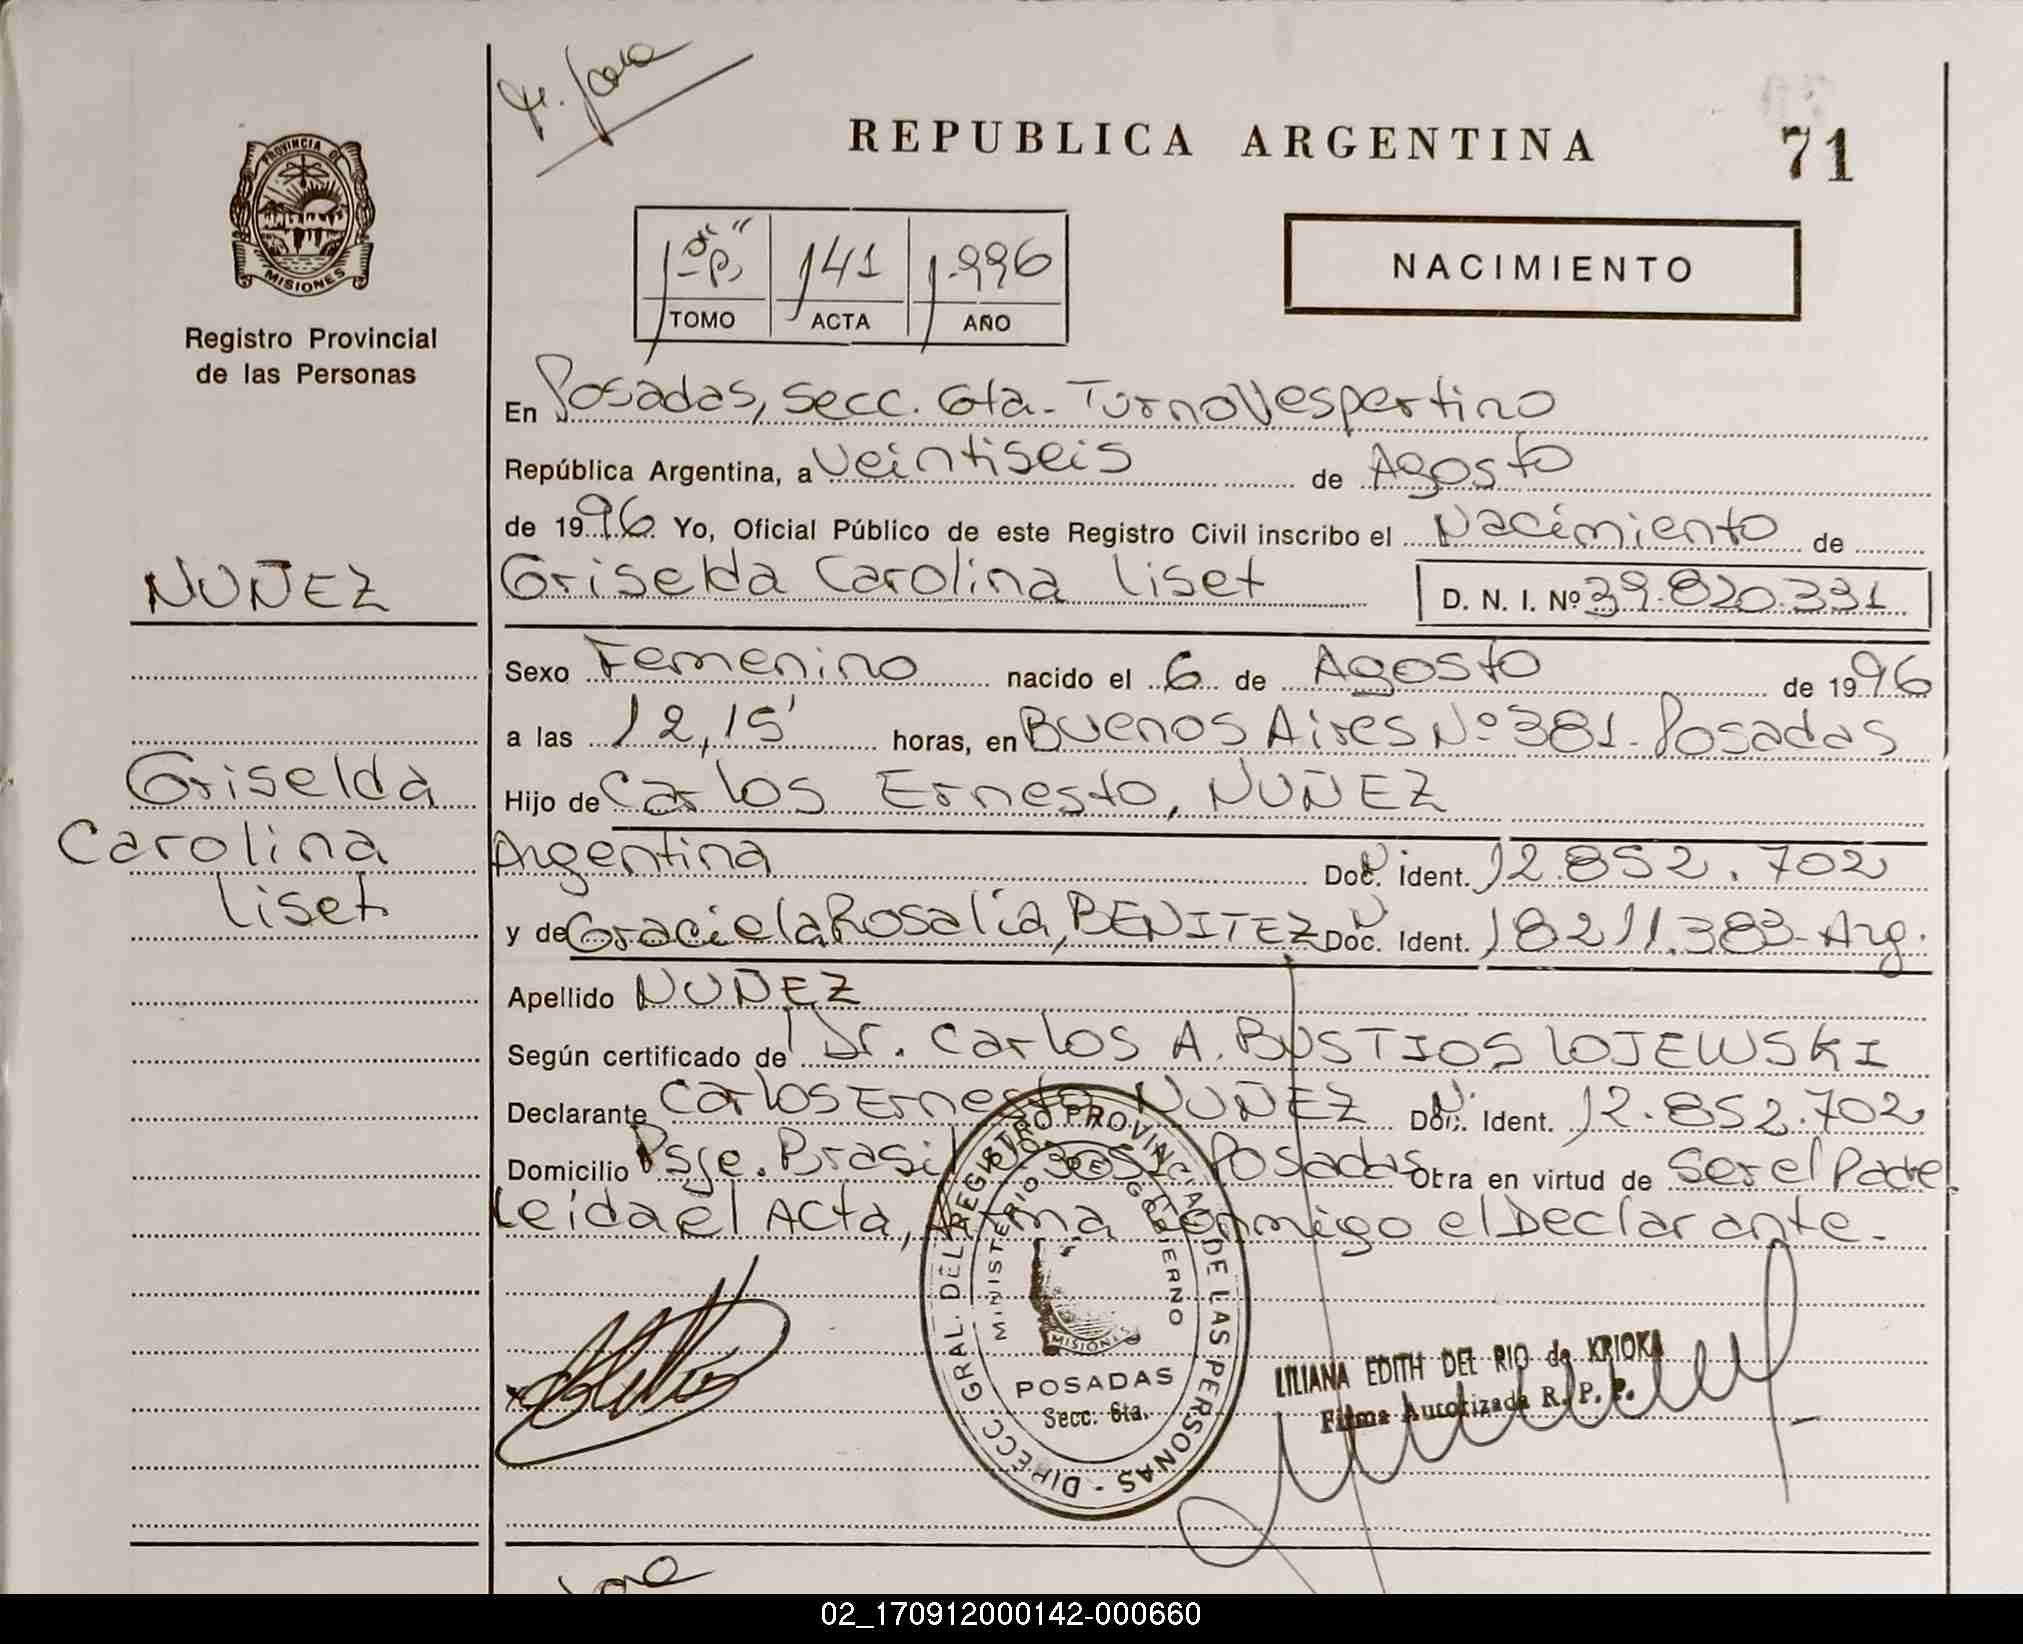 REPUBLICA ARGENTINA
71
PROVINCIA DE
MISIONES
Registro Provincial
de las Personas
141 1.996
TOMO ACTA AÑO
NACIMIENTO
En Posadas, Secc. 6ta - Turno Vespertino
República Argentina, a Veintiseis de Agosto
de 1996 Yo, Oficial Público de este Registro Civil inscribo el Nacimiento de
Griselda Carolina Liset D. N. I. Nº 39.820.331
NUÑEZ
Griselda
Carolina
Liset
Sexo Femenino nacido el 6 de Agosto de 1996
a las 12,15' horas, en Buenos Aires Nº 381 - Posadas
Hijo de Carlos Ernesto, NUÑEZ
Argentina Doc. Ident. 12.852.702
y de Graciela Rosalia, BENITEZ Doc. Ident. 18211.383 - Arg.
Apellido NUÑEZ
Según certificado de Dr. Carlos A. BUSTIOS LOJEWSKI
Declarante Carlos Ernesto NUÑEZ Doc. Ident. 12.852.702
Domicilio Psje. Brasil Posadas Obra en virtud de Ser el Padre
Leida el Acta, firma conmigo el Declarante.
DIRECC GRAL. DEL REGISTRO PROVINCIAL DE LAS PERSONAS -
MINISTERIO DE GOBIERNO
MISIONES
POSADAS
Secc. 6ta.
LILIANA EDITH DEL RIO de KRIOKA
Firma Autorizada R. P. P.
02_170912000142-000660